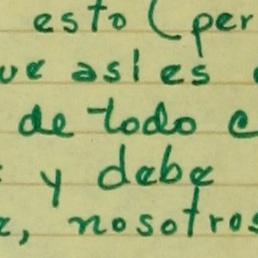 esto (per
ue asi es
de todo e
y debe
, nosotros